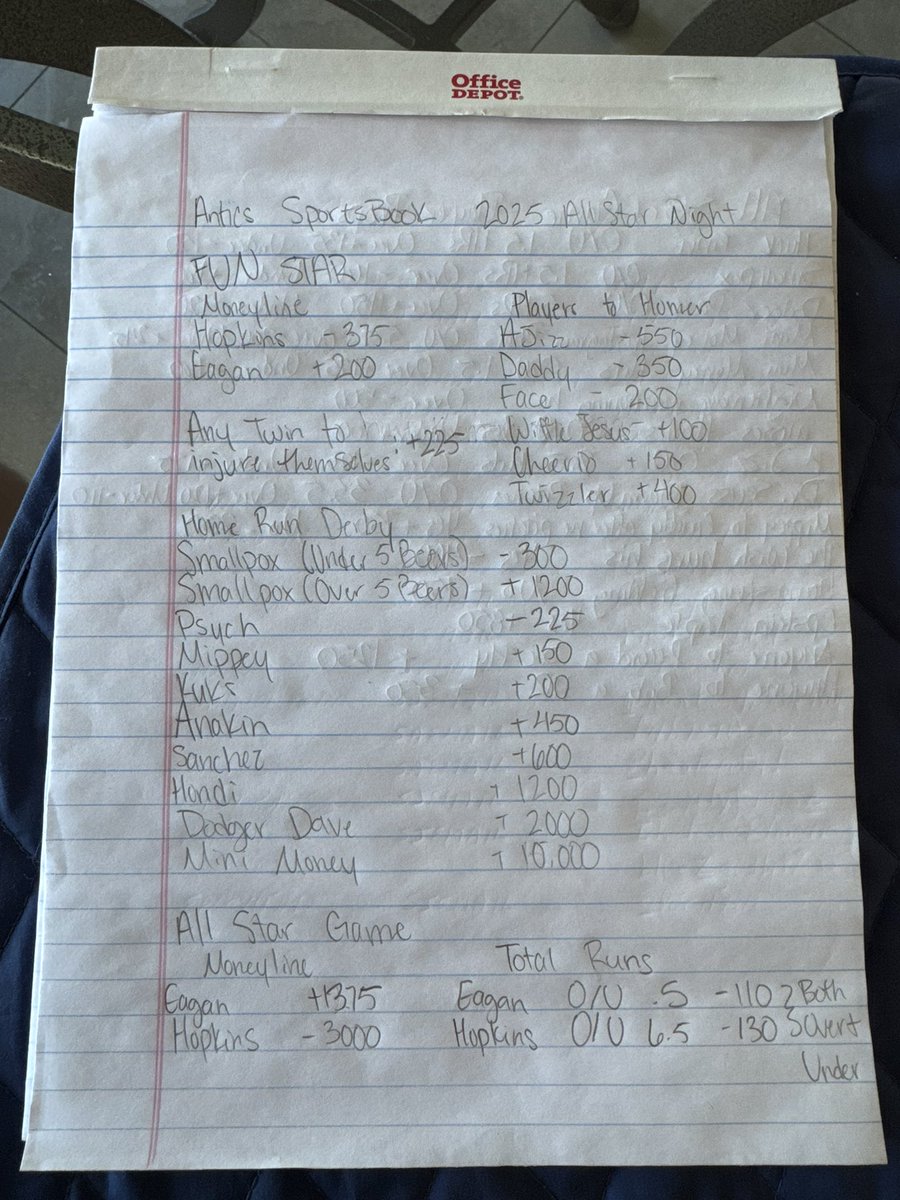 Office
DEPOT.
Antics SportsBook 2025 All Star Night
FUN STAR
Moneyline
Hopkins -375
Eagan +200
Any Twin to injure themselves +225
Players to Homer
AJizz -550
Daddy -350
Face -200
Wiffle Jesus +100
Cheerio +150
Twizzler +400
Home Run Derby
Smallpox (Under 5 Beers) -300
Smallpox (Over 5 Beers) +1200
Psych -225
Mippey +150
Kuks +200
Anakin +450
Sanchez +600
Hondi +1200
Dodger Dave +2000
Mini Money +10,000
All Star Game
Moneyline
Eagan +1375
Hopkins -3000
Total Runs
Eagan O/U .5 -110
Hopkins O/U 6.5 -130
Both
Over +
Under